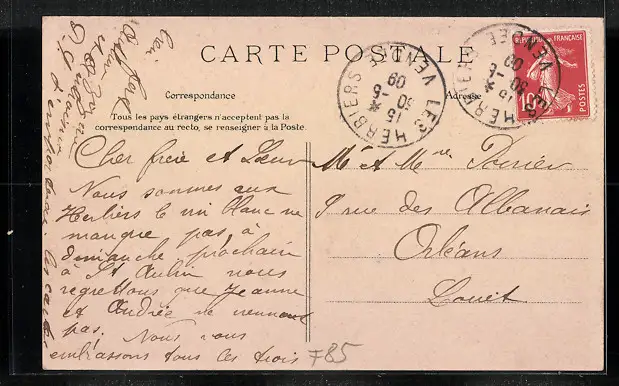 CARTE POSTALE
Correspondance
Adresse
Tous les pays étrangers n'acceptent pas la
correspondance au recto, se renseigner à la Poste.
Cher frère et Sœur
Nous sommes aux
Herbiers le vin blanc ne
manque pas, à
dimanche prochain
à St Aubin nous
regrettons que Jeanne
et Andrée ne viennent
pas. Nous vous
embrassons tous les trois
Mr et Mme Poirier
9 rue des Albanais
Orléans
Loiret
LES HERBIERS
VENDÉE
15 *
30 -5
09
LES HERBIERS
VENDÉE
15 *
30 -5
09
REPUBLIQUE FRANÇAISE
10
POSTES
F85